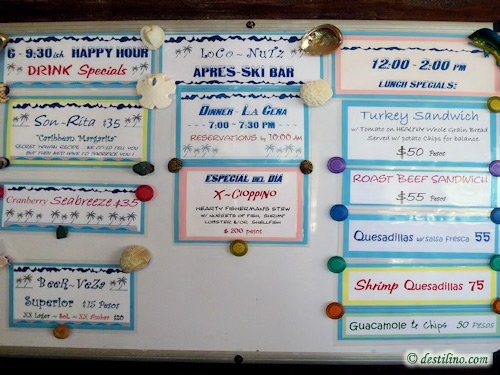 6 - 9:30ish HAPPY HOUR
DRINK Specials
Son-Rita $35
"Caribbean Margarita"
SECRET HAWAII RECIPE... WE COULD TELL YOU
BUT THEN WE'D HAVE TO SACRIFICE YOU !
Cranberry Seabreeze $35
BeeR~VeZa
Superior $15 Pesos
XX Lager ~ Sol ~ XX Ambar $20
LoCo ~ NuTz
APRES-SKI BAR
DINNER - LA CENA
7:00 - 7:30 PM
RESERVATIONS by 10:00 AM
ESPECIAL DEL DIA
X~Cioppino
HEARTY FISHERMANS STEW
W/ NUGGETS OF FISH, SHRIMP
LOBSTER &/OR SHELLFISH
$ 200 pesos
12:00 - 2:00 PM
LUNCH SPECIALS:
Turkey Sandwich
w/ Tomato on HEALTHY Whole Grain Bread
Served w/ potato Chips for balance
$50 Pesos
ROAST BEEF SANDWICH
$55 Pesos
Quesadillas w/salsa fresca 55
Shrimp Quesadillas 75
Guacamole & Chips 50 Pesos
© destilino.com